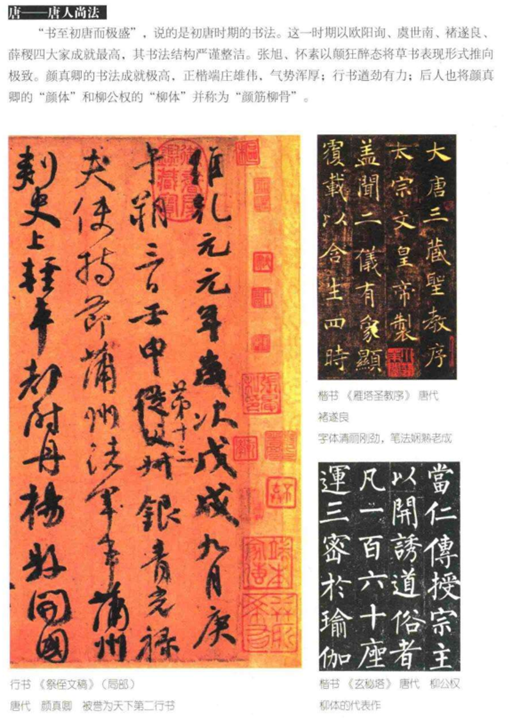 唐——唐人尚法
“书至初唐而极盛”，说的是初唐时期的书法。这一时期以欧阳询、虞世南、褚遂良、
薛稷四大家成就最高，其书法结构严谨整洁。张旭、怀素以颠狂醉态将草书表现形式推向
极致。颜真卿的书法成就极高，正楷端庄雄伟，气势浑厚；行书遒劲有力；后人也将颜真
卿的“颜体”和柳公权的“柳体”并称为“颜筋柳骨”。
維乾元元年歲次戊戌九月庚
午朔三日壬申第十三銀青光祿
夫使持節蒲州諸軍事蒲州
刺史上輕車都尉丹楊縣開國
行书 《祭侄文稿》（局部）
唐代 颜真卿 被誉为天下第二行书
大唐三藏聖教序
太宗文皇帝製
蓋聞二儀有象顯
覆載以含生四時
楷书 《雁塔圣教序》 唐代
褚遂良
字体清丽刚劲，笔法娴熟老成
當仁傳授宗主
以開誘道俗者
凡一百六十座
運三密於瑜伽
楷书 《玄秘塔》 唐代 柳公权
柳体的代表作